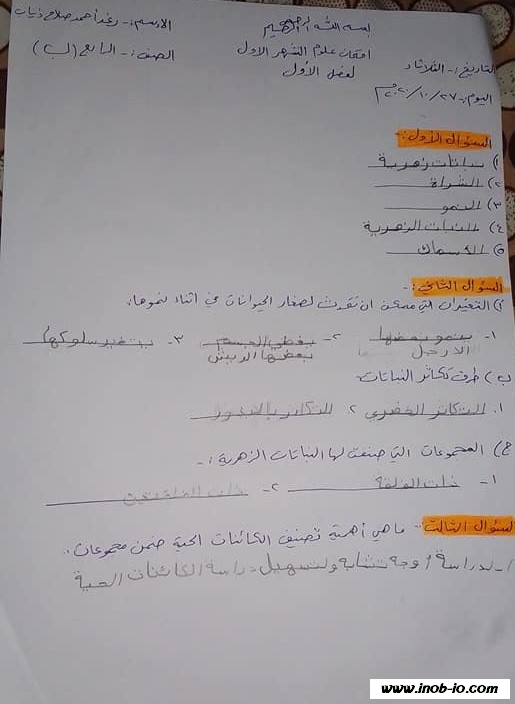 بسم الله الرحمن الرحيم
الاسم:- رغد أحمد صلاح ذياب
امتحان علوم الشهر الاول
الصف:- الرابع (ب)
لفصل الأول
التاريخ:- الثلاثاء
اليوم:- ٢٧/١٠/٢٠٢٠م
السؤال الأول:-
١) نباتات زهرية
٢) الشراة
٣) النمو
٤) النبات الزهرية
٥) الأسماك
السؤال الثاني:-
أ) التغيرات التي ممكن ان تحدث لصغار الحيوانات في اثناء نموها:
١- ينمو بعضها الارجل ٢- يغطي الجسم بعضها الريش ٣- يتغير سلوكها
ب) طرق تكاثر النباتات
١. التكاثر الخضري ٢ التكاثر بالبذور
ج) المجموعات التي صنفت لها النباتات الزهرية:-
١- ذات الفلقة ٢- ذات الفلقتين
السؤال الثالث:- ما هي أهمية تصنيف الكائنات الحية ضمن مجموعات:.
١- لدراسة اوجه تشابه ولتسهيل دراسة الكائنات الحية
www.inob-io.com